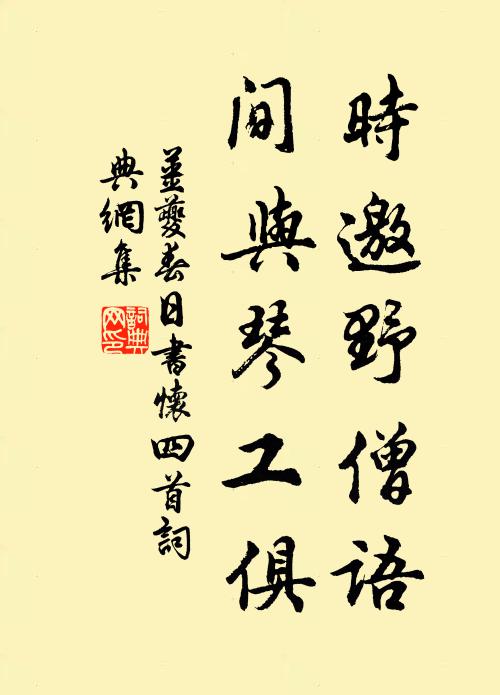 時邀野僧語
间與琴工俱
姜夔春日書懷四首詞
典網集
詞典网印